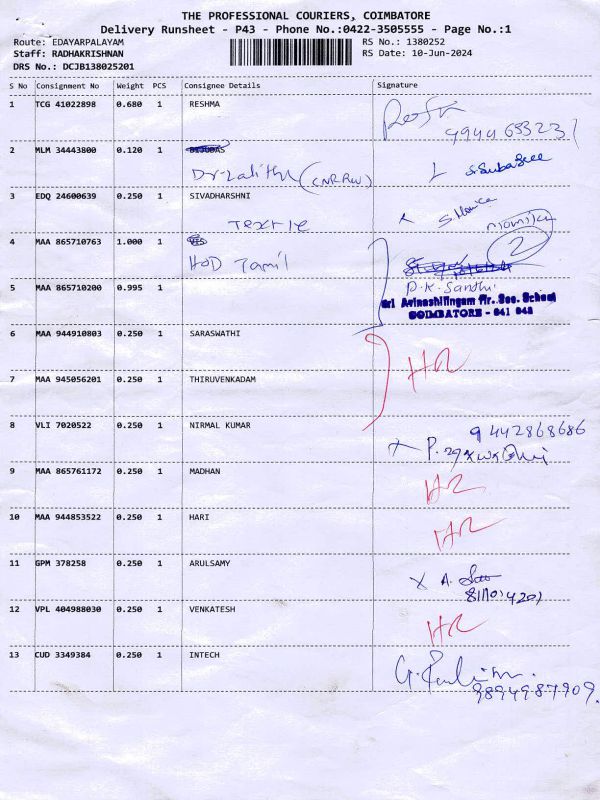 THE PROFESSIONAL COURIERS, COIMBATORE
Delivery Runsheet - P43 - Phone No.:0422-3505555 - Page No.:1
Route: EDAYARPALAYAM RS No.: 1380252
Staff: RADHAKRISHNAN RS Date: 10-Jun-2024
DRS No.: DCJB138025201
S No Consignment No Weight PCS Consignee Details Signature
1 TCG 41022898 0.680 1 RESHMA
2 MLM 34443800 0.120 1
Dr-Lalitha (CNRRW) S. Subasree
3 EDQ 24600639 0.250 1 SIVADHARSHNI
Textile
4 MAA 865710763 1.000 1
HOD Tamil 2
5 MAA 865710200 0.995 1 P.K. Sandhi
Sri Avinashilingam Hr. Sec. School
COIMBATORE - 641 043
6 MAA 944910803 0.250 1 SARASWATHI
HR
7 MAA 945056201 0.250 1 THIRUVENKADAM
8 VLI 7020522 0.250 1 NIRMAL KUMAR 9442868686
9 MAA 865761172 0.250 1 MADHAN HR
10 MAA 944853522 0.250 1 HARI HR
11 GPM 378258 0.250 1 ARULSAMY
12 VPL 404988030 0.250 1 VENKATESH HR
13 CUD 3349384 0.250 1 INTECH
9894987909